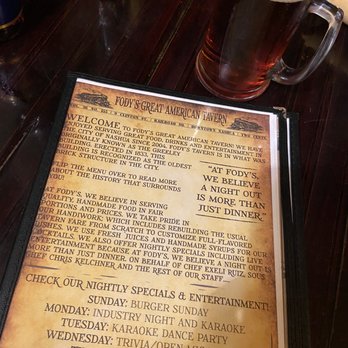 FODY'S GREAT AMERICAN TAVERN
WELCOME TO FODY'S GREAT AMERICAN TAVERN! WE HAVE
ENJOYED SERVING GREAT FOOD, DRINKS AND ENTERTAINMENT IN
THE CITY OF NASHUA SINCE 2004. FODY'S TAVERN IS IN WHAT WAS
ORIGINALLY KNOWN AS THE GREELEY
BUILDING. ERECTED IN 1833, THIS
BUILDING IS RECOGNIZED AS THE OLDEST
BRICK STRUCTURE IN THE CITY.
FLIP THE MENU OVER TO READ MORE
ABOUT THE HISTORY THAT SURROUNDS
YOU!
"AT FODY'S,
WE BELIEVE
A NIGHT OUT
IS MORE THAN
JUST DINNER."
AT FODY'S, WE BELIEVE IN SERVING
QUALITY, HANDMADE FOOD IN FAIR
PORTIONS AND PRICES. WE TAKE PRIDE IN
OUR HANDIWORK; WHICH INCLUDES REBUILDING THE USUAL
TAVERN FARE FROM SCRATCH TO CUSTOMIZE FULL-FLAVORED
DISHES. WE USE FRESH JUICES AND HANDMADE SYRUPS FOR OUR
COCKTAILS. WE ALSO OFFER NIGHTLY SPECIALS INCLUDING LIVE
ENTERTAINMENT BECAUSE AT FODY'S, WE BELIEVE, A NIGHT OUT IS
MORE THAN JUST DINNER. ON BEHALF OF CHEF EXELI RUIZ, SOUS
CHEF CHRIS KELCHNER AND THE REST OF OUR STAFF
CHECK OUR NIGHTLY SPECIALS & ENTERTAINMENT:
SUNDAY: BURGER SUNDAY
MONDAY: INDUSTRY NIGHT AND KARAOKE
TUESDAY: KARAOKE DANCE PARTY
WEDNESDAY: TRIVIA/OPEN